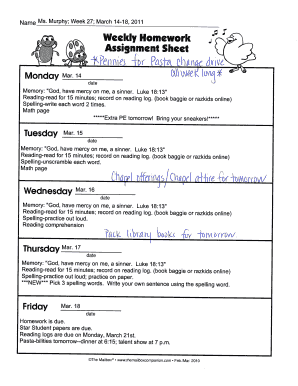 Name Ms. Murphy; Week 27; March 14-18, 2011
Weekly Homework
Assignment Sheet
*Pennies for Pasta change drive
all week long*
Monday Mar. 14
date
Memory: "God, have mercy on me, a sinner. Luke 18:13"
Reading-read for 15 minutes; record on reading log. (book baggie or razkids online)
Spelling-write each word 2 times.
Math page
*****Extra PE tomorrow! Bring your sneakers!*****
Tuesday Mar. 15
date
Memory: "God, have mercy on me, a sinner. Luke 18:13"
Reading-read for 15 minutes; record on reading log. (book baggie or razkids online)
Spelling-unscramble each word.
Math page
Chapel offerings/Chapel attire for tomorrow
Wednesday Mar. 16
date
Memory: "God, have mercy on me, a sinner. Luke 18:13"
Reading-read for 15 minutes; record on reading log. (book baggie or razkids online)
Spelling-practice out loud.
Reading comprehension
Pack library books for tomorrow
Thursday Mar. 17
date
Memory: "God, have mercy on me, a sinner. Luke 18:13"
Reading-read for 15 minutes; record on reading log. (book baggie or razkids online)
Spelling-practice out loud; practice on paper.
***NEW*** Pick 3 spelling words. Write your own sentence using the spelling word.
Friday Mar. 18
date
Homework is due.
Star Student papers are due.
Reading logs are due on Monday, March 21st.
Pasta-bilities tomorrow--dinner at 6:15; talent show at 7 p.m.
©The Mailbox® • www.themailboxcompanion.com • Feb./Mar. 2010